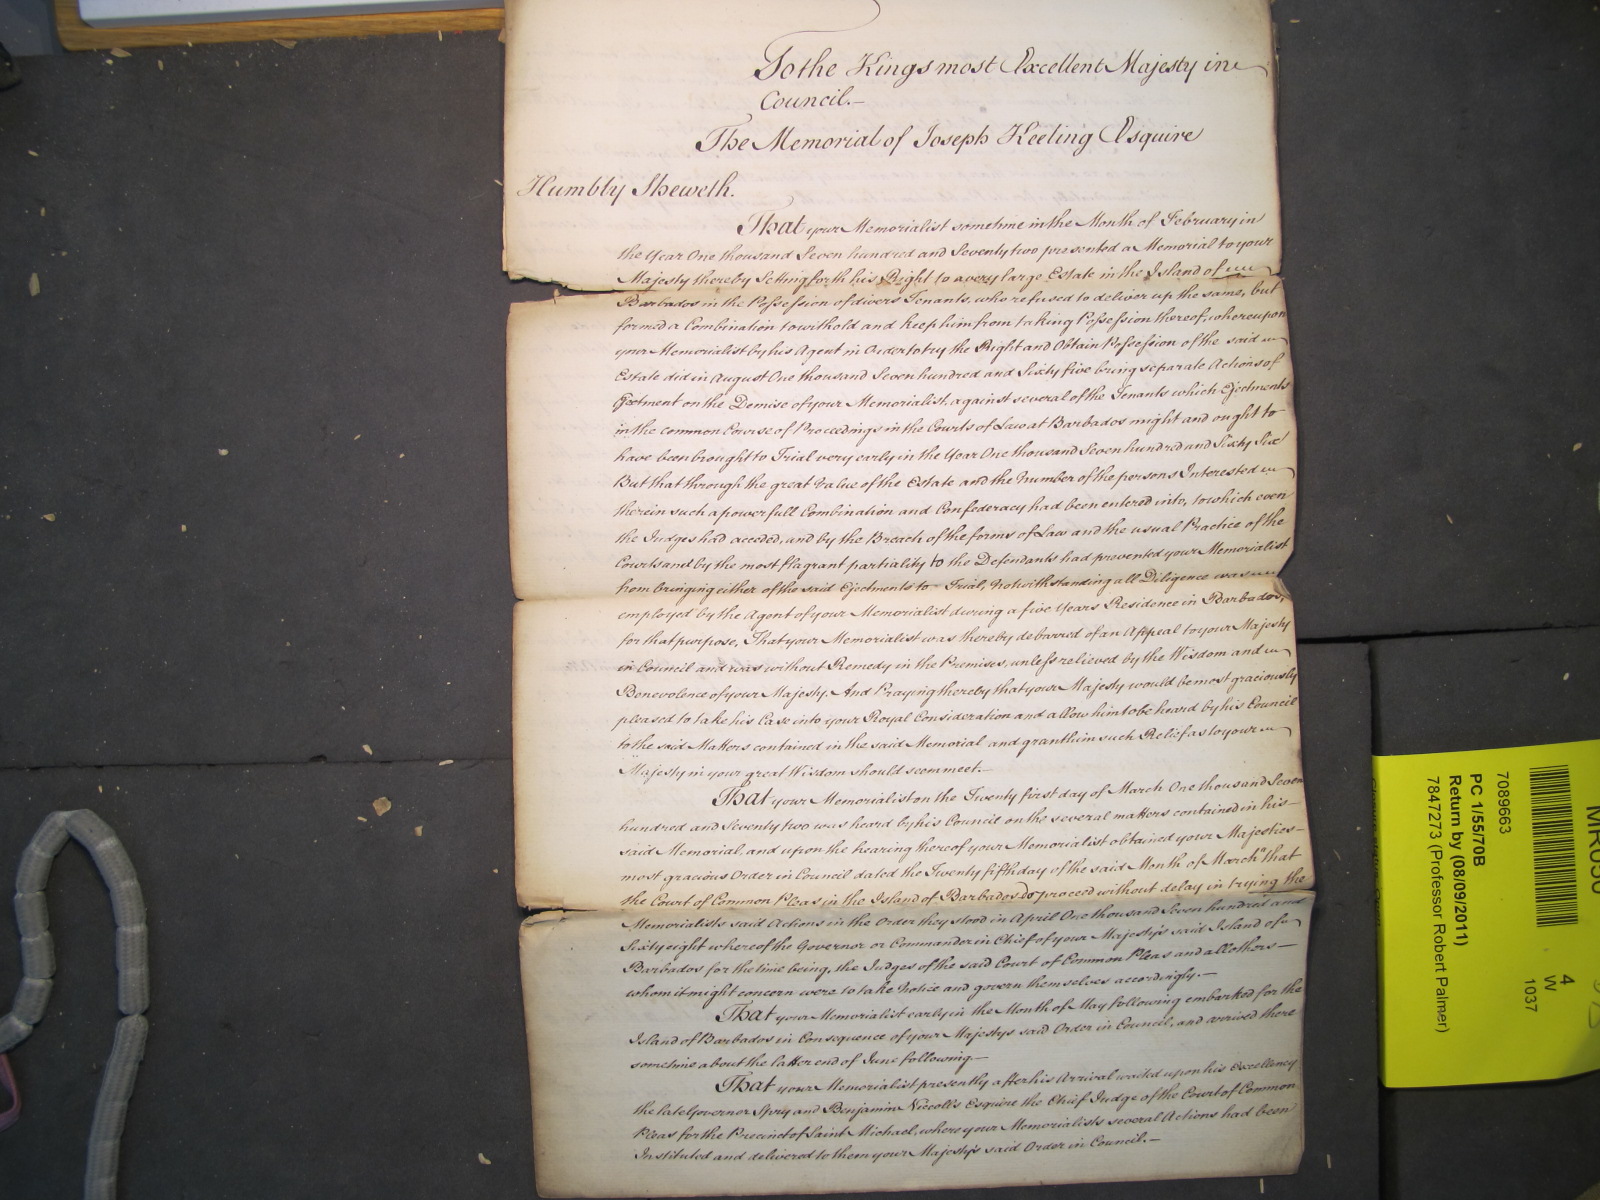 To the Kings most Excellent Majesty in
Council.
The Memorial of Joseph Keeling Esquire
Humbly Sheweth.
That your Memorialist sometime in the Month of February in
the Year One thousand Seven hundred and Seventy two presented a Memorial to your
Majesty thereby Setting forth his Right to a very large Estate in the Island of
Barbados in the Possession of divers Tenants, who refused to deliver up the same, but
formed a Combination to withold and keep him from taking Possession thereof, whereupon
your Memorialist by his Agent in Order to try the Right and Obtain Possession of the said
Estate did in August One thousand Seven hundred and Sixty five bring separate Actions of
Ejectment on the Demise of your Memorialist against several of the Tenants which Ejectments
in the common Course of Proceedings in the Courts of Law at Barbados might and ought to
have been brought to Trial very early in the Year One thousand Seven hundred and Sixty Six
But that through the great Value of the Estate and the Number of the persons Interested
therein such a powerfull Combination and Confederacy had been entered into, to which even
the Judges had acceded, and by the Breach of the forms of Law and the usual Practice of the
Courts and by the most flagrant partiality to the Defendants had prevented your Memorialist
from bringing either of the said Ejectments to Trial, Notwithstanding all Diligence was
employed by the Agent of your Memorialist during a five Years Residence in Barbados,
for that purpose, That your Memorialist was thereby debarred of an Appeal to your Majesty
in Council and was without Remedy in the Premises, unless relieved by the Wisdom and
Benevolence of your Majesty. And Praying thereby that your Majesty would be most graciously
pleased to take his Case into your Royal Consideration and allow him to be heard by his Council
to the said Matters contained in the said Memorial and grant him such Relief as to your
Majesty in your great Wisdom should seem meet.
That your Memorialist on the Twenty first day of March One thousand Seven
hundred and Seventy two was heard by his Council on the several matters contained in his
said Memorial, and upon the hearing thereof your Memorialist obtained your Majesties
most gracious Order in Council dated the Twenty fifth day of the said Month of March "that
the Court of Common Pleas in the Island of Barbados do proceed without delay in trying the
Memorialists said Actions in the Order they stood in April One thousand Seven hundred and
Sixty eight whereof the Governor or Commander in Chief of your Majesty's said Island of
Barbados for the time being, the Judges of the said Court of Common Pleas and all others
whom it might concern were to take Notice and govern themselves accordingly.
That your Memorialist early in the Month of May following embarked for the
Island of Barbados in Consequence of your Majestys said Order in Council, and arrived there
sometime about the latter end of June following
That your Memorialist presently after his Arrival waited upon his Excellency
the late Governor Spry and Benjamin Niccolls Esquire the Chief Judge of the Court of Common
Pleas for the Precinct of Saint Michael, where your Memorialists several Actions had been
Instituted and delivered to them your Majesty's said Order in Council.
7089663
PC 1/55/70B
Return by (08/09/2011)
7847273 (Professor Robert Palmer)
4
W
1037